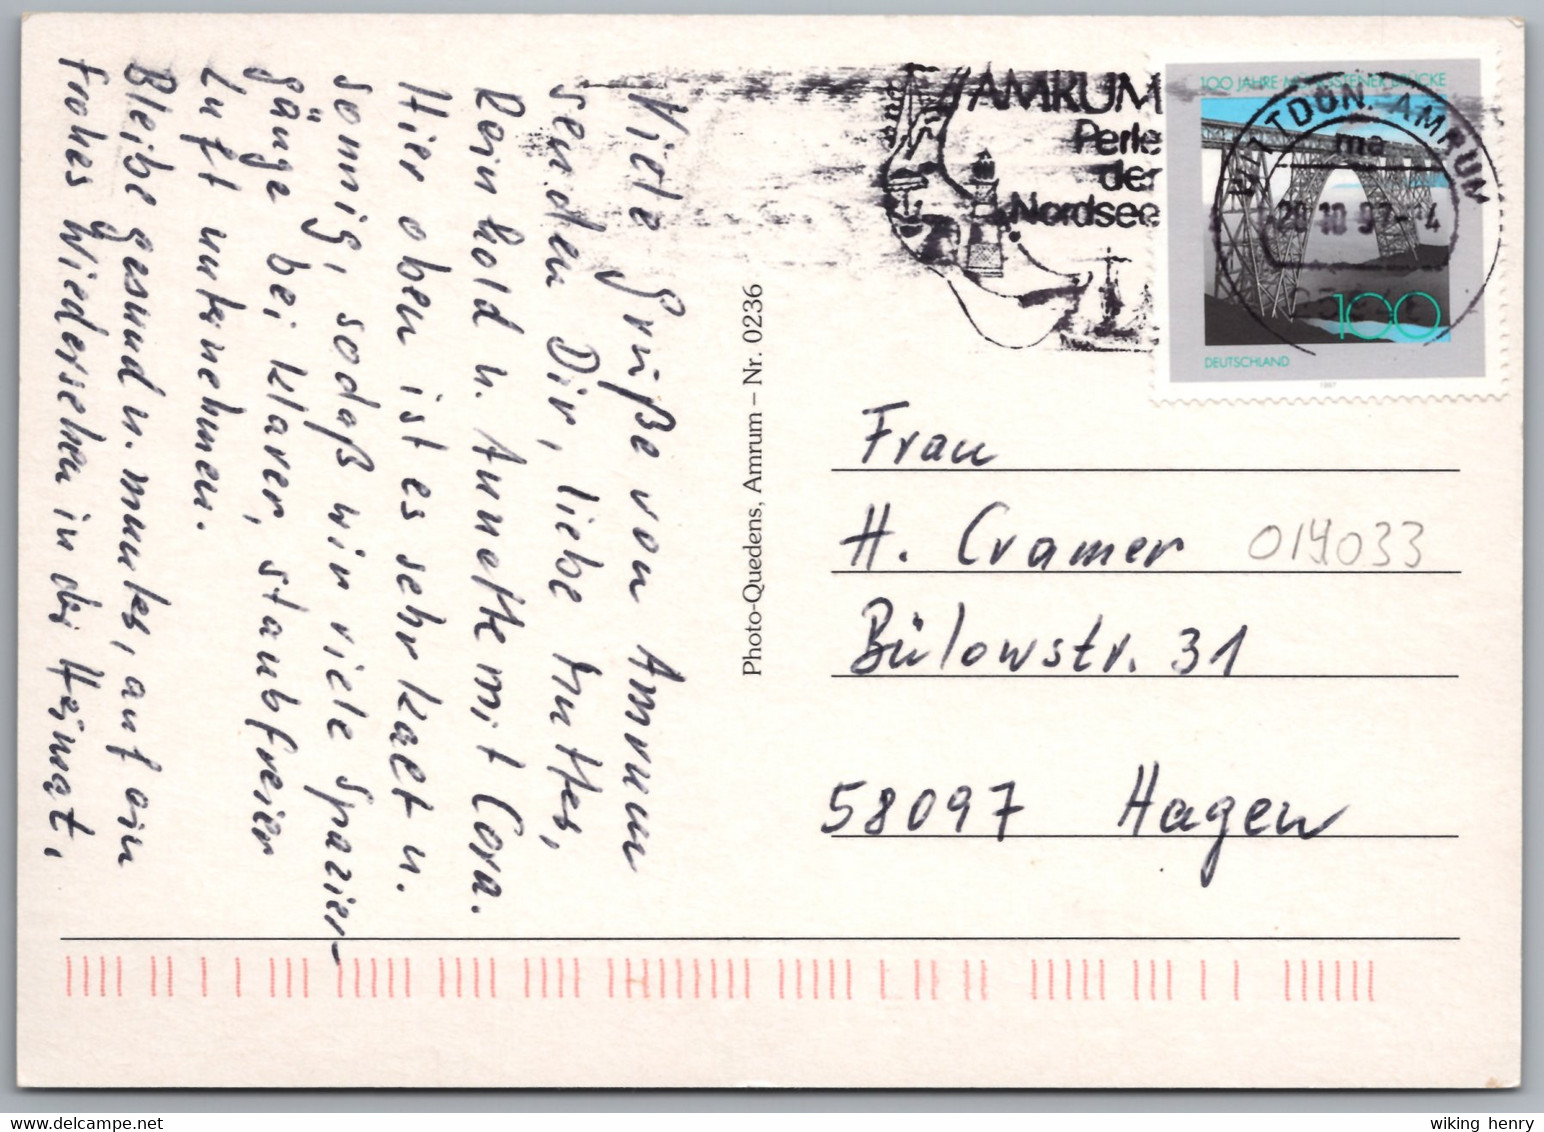 Viele Grüße von Amrum
senden Dir, liebe Mutter,
Reinhold u. Annette mit Cora.
Hier oben ist es sehr kalt u.
sonnig, sodaß wir viele Spazier-
gänge bei klarer, staubfreier
Luft unternehmen.
Bleibe gesund u. munter, auf ein
frohes Wiedersehen in der Heimat.
Photo-Quedens, Amrum – Nr. 0236
AMRUM
Perle
der
Nordsee
100 JAHRE MÜNGSTENER BRÜCKE
WITTDÜN, AMRUM
ma
20.10.97-14
100
DEUTSCHLAND
1997
Frau
H. Cramer
014033
Bülowstr. 31
58097 Hagen
wiking henry